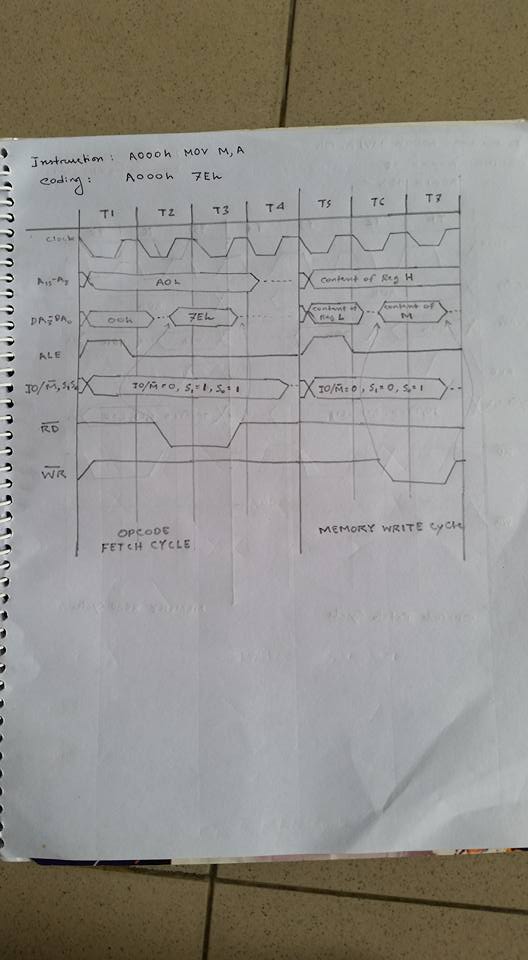 Instruction: A000h MOV M,A
Coding: A000h 7Eh
T1 T2 T3 T4 T5 T6 T7
Clock
A15-A8 A0h Content of Reg H
DA7-DA0 00h 7Eh Content of Reg L Content of M
ALE
IO/M̅, S1 S0 IO/M̅=0, S1=1, S0=1 IO/M̅=0, S1=0, S0=1
R̅D̅
W̅R̅
OPCODE FETCH CYCLE MEMORY WRITE CYCLE